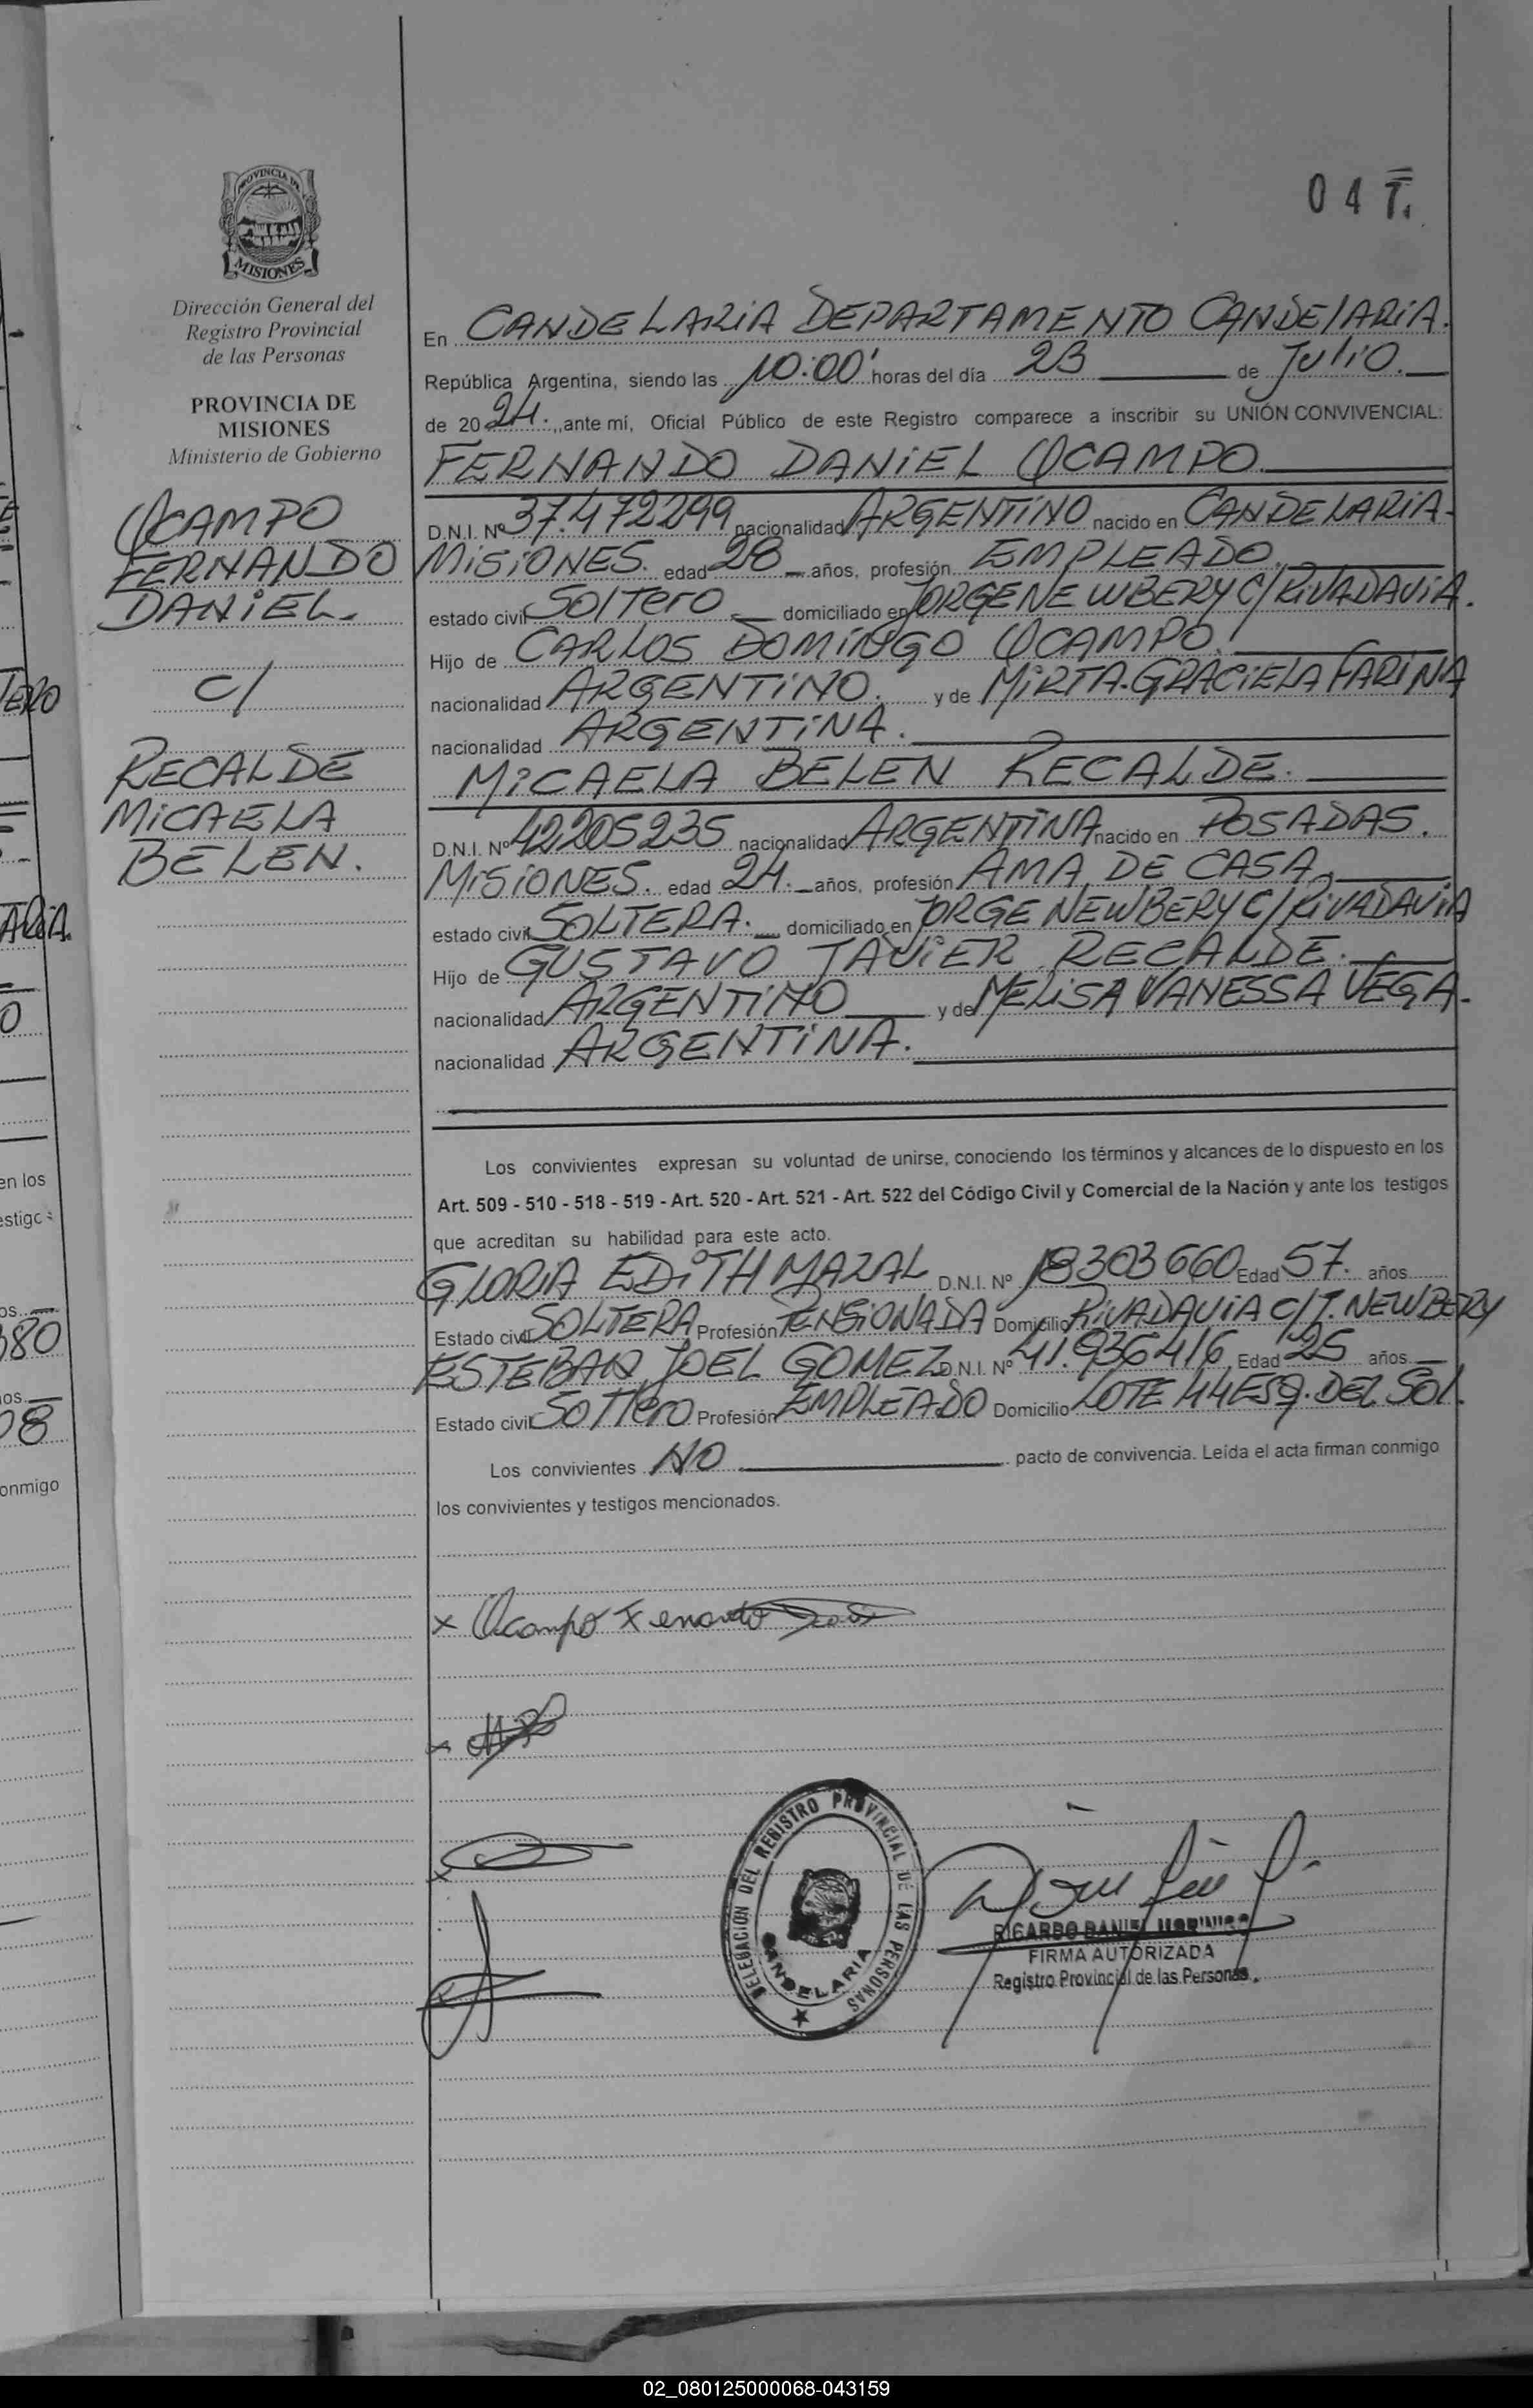 047
PROVINCIA DE
MISIONES
Dirección General del
Registro Provincial
de las Personas
PROVINCIA DE
MISIONES
Ministerio de Gobierno
OCAMPO
FERNANDO
DANIEL.
c/
RECALDE
MICAELA
BELEN.
En CANDELARIA DEPARTAMENTO CANDELARIA.
República Argentina, siendo las 10:00' horas del día 23 de Julio.
de 2024. ,ante mí, Oficial Público de este Registro comparece a inscribir su UNIÓN CONVIVENCIAL:
FERNANDO DANIEL OCAMPO
D.N.I. Nº 37.472299 nacionalidad ARGENTINO nacido en CANDELARIA-
MISIONES. edad 28 años, profesión EMPLEADO.
estado civil Soltero domiciliado en JORGE NEWBERY C/ RIVADAVIA.
Hijo de CARLOS DOMINGO OCAMPO.
nacionalidad ARGENTINO. y de MIRTA GRACIELA FARINA
nacionalidad ARGENTINA.
MICAELA BELEN RECALDE.
D.N.I. Nº 42205235 nacionalidad ARGENTINA nacido en POSADAS.
MISIONES. edad 24. años, profesión AMA DE CASA.
estado civil SOLTERA. domiciliado en JORGE NEWBERY C/ RIVADAVIA
Hijo de GUSTAVO JAVIER RECALDE.
nacionalidad ARGENTINO y de MELISA VANESSA VEGA.
nacionalidad ARGENTINA.
Los convivientes expresan su voluntad de unirse, conociendo los términos y alcances de lo dispuesto en los
Art. 509 - 510 - 518 - 519 - Art. 520 - Art. 521 - Art. 522 del Código Civil y Comercial de la Nación y ante los testigos
que acreditan su habilidad para este acto.
GLORIA EDITH MAZAL D.N.I. Nº 18303660 Edad 57. años
Estado civil SOLTERA Profesión PENSIONADA Domicilio RIVADAVIA C/J. NEWBERY
ESTEBAN JOEL GOMEZ D.N.I. Nº 41.936416 Edad 25 años
Estado civil Soltero Profesión EMPLEADO Domicilio LOTE 44 ESQ. DEL SOL.
Los convivientes NO pacto de convivencia. Leída el acta firman conmigo
los convivientes y testigos mencionados.
x Ocampo Fernando
DELEGACION DEL REGISTRO PROVINCIAL DE LAS PERSONAS
CANDELARIA
RICARDO DANIEL
FIRMA AUTORIZADA
Registro Provincial de las Personas
02_080125000068-043159